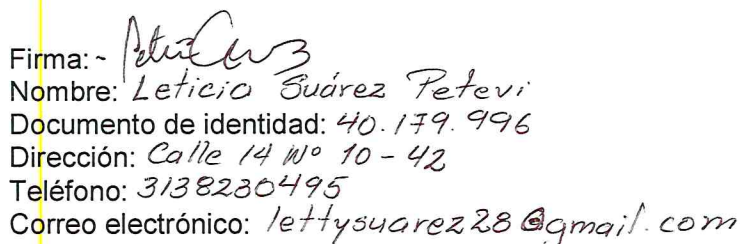 Firma: ~
Nombre: Leticia Suárez Petevi
Documento de identidad: 40.179.996
Dirección: Calle 14 Nº 10 - 42
Teléfono: 3138230495
Correo electrónico: lettysuarez28@gmail.com